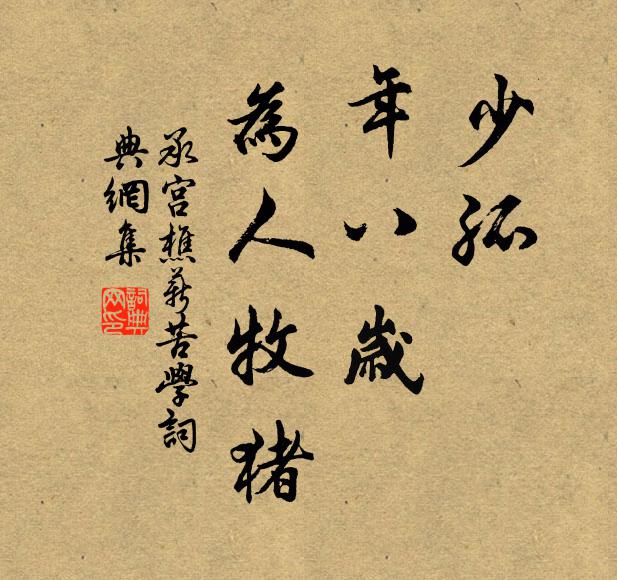 少孤
年八歲
為人牧猪
承宮樵薪苦學詞
典網集
詞典
网印